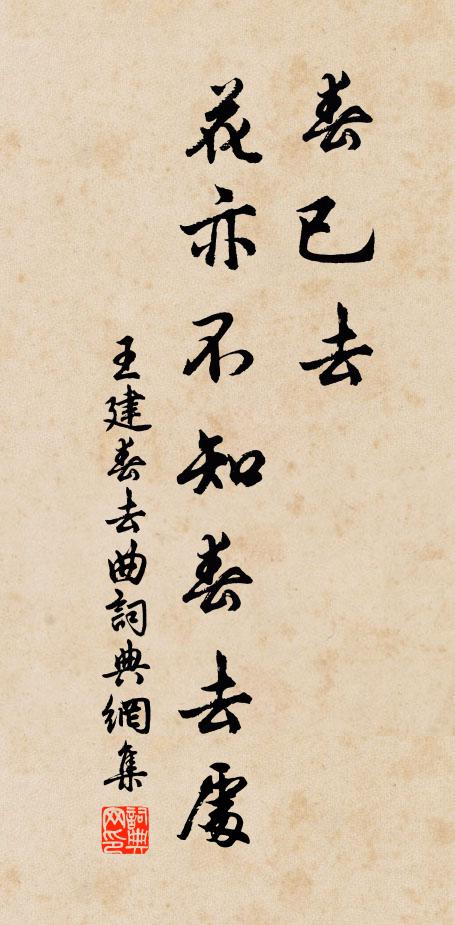 春已去
花亦不知春去處
王建春去曲詞典網集
詞典网印